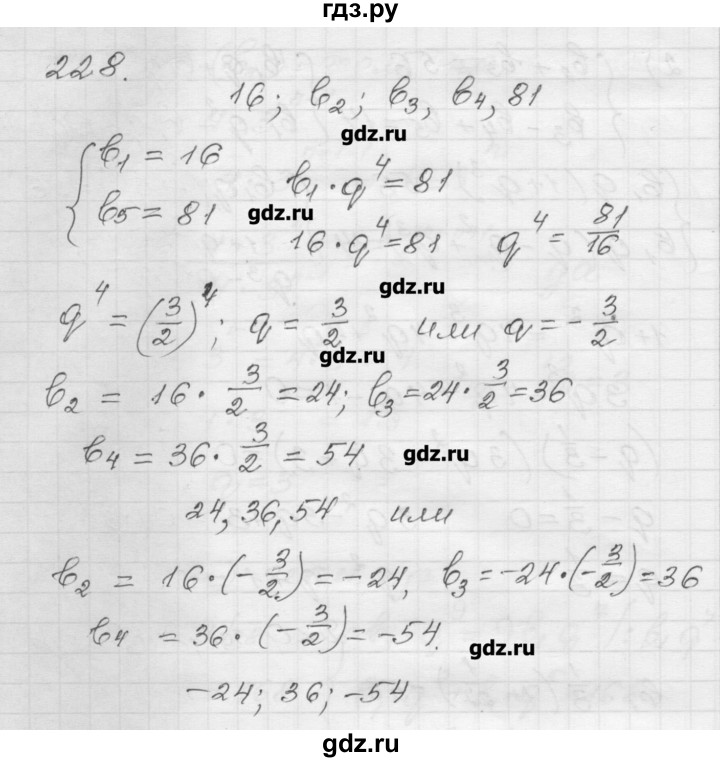 гдз.ру
228.
16; b₂; b₃, b₄, 81
gdz.ru
{ b₁ = 16
b₅ = 81
b₁·q⁴ = 81
gdz.ru
16·q⁴ = 81 q⁴ = 81/16
gdz.ru
q⁴ = (3/2)⁴; q = 3/2 или q = -3/2
gdz.ru
b₂ = 16·3/2 = 24; b₃ = 24·3/2 = 36
b₄ = 36·3/2 = 54 gdz.ru
24, 36, 54 или
b₂ = 16·(-3/2) = -24, b₃ = -24·(-3/2) = 36
b₄ = 36·(-3/2) = -54.
gdz.ru
-24; 36; -54
gdz.ru